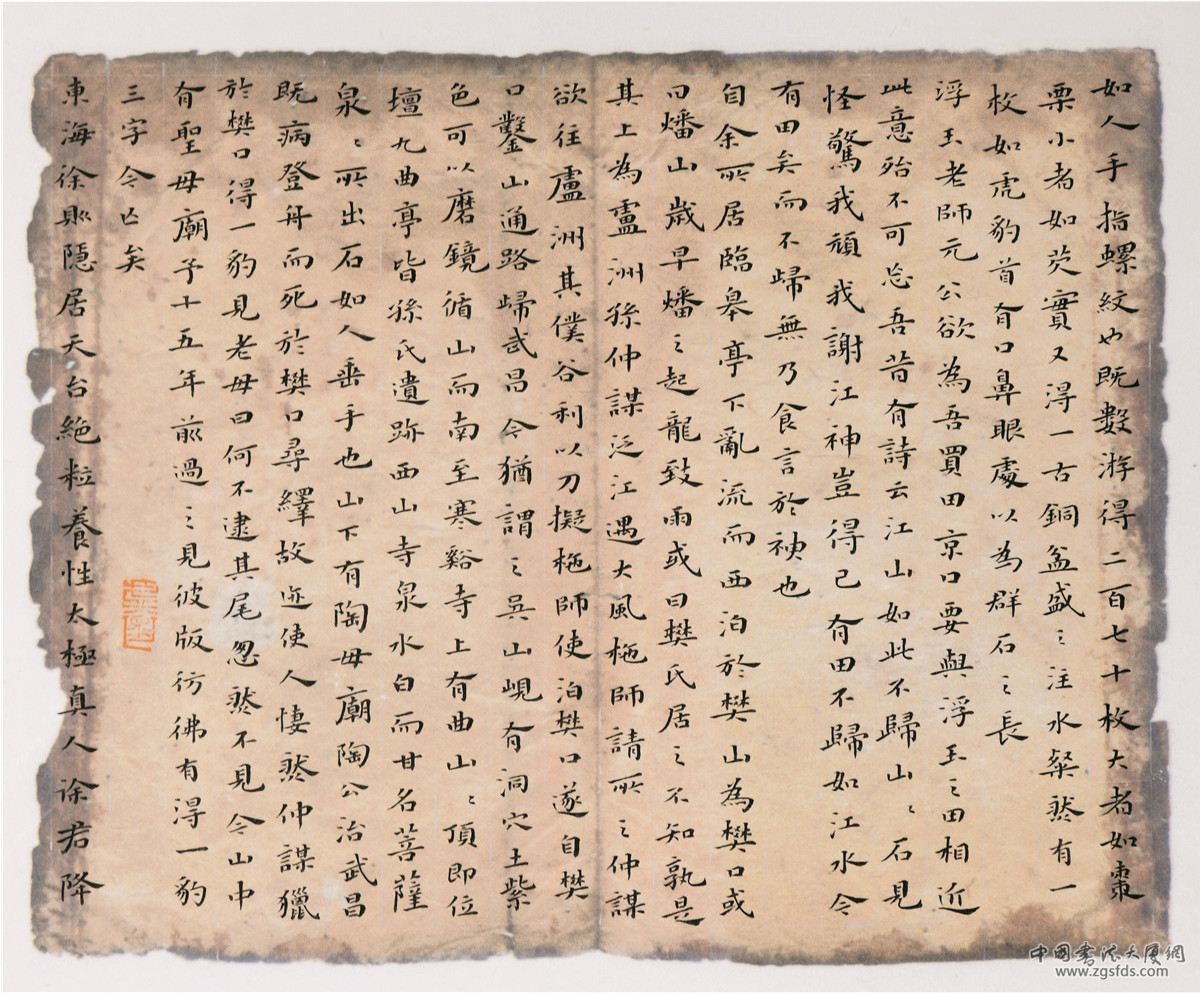 如人手指螺紋也既數游得二百七十枚大者如棗
栗小者如芡實又得一古銅盆盛之注水粲然有一
枚如虎豹首有口鼻眼處以為群石之長
浮玉老師元公欲為吾買田京口要與浮玉之田相近
此意殆不可忘吾昔有詩云江山如此不歸山〻石見
怪驚我頑我謝江神豈得已有田不歸如江水今
有田矣而不歸無乃食言於神也
自余所居臨皋亭下亂流而西泊於樊山為樊口或
曰燔山歲旱燔之起龍致雨或曰樊氏居之不知孰是
其上為盧洲孫仲謀泛江遇大風柂師請所之仲謀
欲往盧洲其僕谷利以刀擬柂師使泊樊口遂自樊
口鑿山通路歸武昌今猶謂之吳山峴有洞穴土紫
色可以磨鏡循山而南至寒谿寺上有曲山〻頂即位
壇九曲亭皆孫氏遺跡西山寺泉水白而甘名菩薩
泉〻所出石如人垂手也山下有陶母廟陶公治武昌
既病登舟而死於樊口尋繹故迹使人悽然仲謀獵
於樊口得一豹見老母曰何不逮其尾忽然不見今山中
有聖母廟予十五年前過之見彼版彷彿有得一豹
三字今亡矣
東海徐則隱居天台絕粒養性太極真人徐君降
中国书法大厦網
www.zgsfds.com